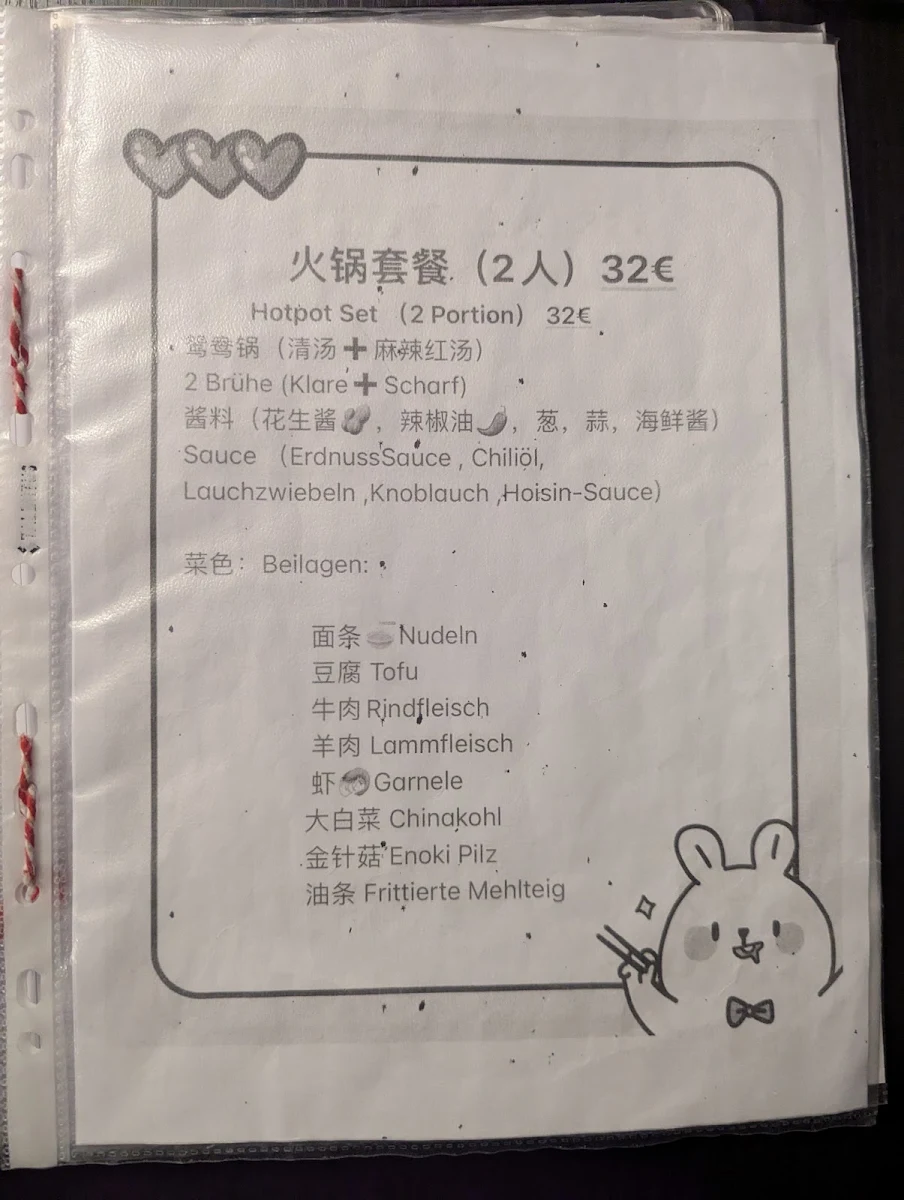 火锅套餐（2人）32€
Hotpot Set （2 Portion） 32€
鸳鸯锅（清汤➕麻辣红汤）
2 Brühe (Klare➕Scharf)
酱料（花生酱🥜，辣椒油🌶️，葱，蒜，海鲜酱）
Sauce （ErdnussSauce , Chiliöl,
Lauchzwiebeln ,Knoblauch ,Hoisin-Sauce）
菜色：Beilagen:
面条🍜Nudeln
豆腐 Tofu
牛肉 Rindfleisch
羊肉 Lammfleisch
虾🦐Garnele
大白菜 Chinakohl
金针菇 Enoki Pilz
油条 Frittierte Mehlteig